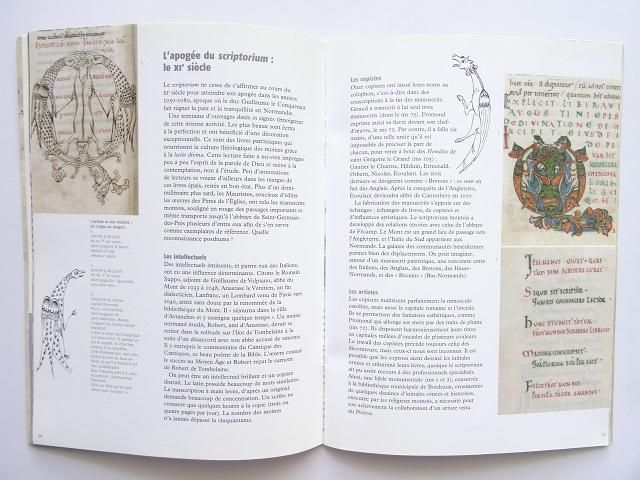 L'apogée du scriptorium :
le XIe siècle
Le scriptorium ne cesse de s'affirmer au cours du
XIe siècle pour atteindre son apogée dans les années
1050-1080, époque où le duc Guillaume le Conquérant
fait régner la paix et la tranquillité en Normandie.
Une trentaine d'ouvrages datés et signés témoignent
de cette intense activité. Les plus beaux sont écrits
à la perfection et ont bénéficié d'une décoration
exceptionnelle. Ce sont des livres patristiques qui
nourrissent la culture théologique des moines grâce
à la lectio divina. Cette lecture faite à mi-voix imprègne
peu à peu l'esprit de la parole de Dieu et mène à la
contemplation, non à l'étude. Peu d'annotations
de lecteurs se voient d'ailleurs dans les marges de
ces livres épais, restés en bon état. Plus d'un demi-
millénaire plus tard, les Mauristes, soucieux d'éditer
les œuvres des Pères de l'Église, ont relu les manuscrits
montois, souligné en rouge des passages importants et
même transporté jusqu'à l'abbaye de Saint-Germain-
des-Prés plusieurs d'entre eux afin de s'en servir
comme ouvrages de référence. Quelle
reconnaissance posthume !
Les intellectuels
Des intellectuels éminents, et parmi eux des Italiens,
ont eu une influence déterminante. Citons le Romain
Suppo, adjoint de Guillaume de Volpiano, abbé
du Mont de 1033 à 1048, Anastase le Vénitien, un fin
dialecticien, Lanfranc, un Lombard venu de Pavie vers
1040, attiré sans doute par la renommée de la
bibliothèque du Mont. Il « séjourna dans la ville
d'Avranches et y enseigna quelque temps ». Un moine
normand érudit, Robert, ami d'Anastase, devait se
retirer dans la solitude sur l'îlot de Tombelaine à la
suite d'un désaccord avec son abbé accusé de simonie.
Il y rompit le commentaire du Cantique des
Cantiques, ce beau poème de la Bible. L'œuvre connut
le succès au Moyen Âge et Robert reçut le surnom
de Robert de Tombelaine.
On peut être un intellectuel brillant et un copiste
distrait. Le latin possède beaucoup de mots similaires.
La transcription à main levée, d'après un original,
demande beaucoup de concentration. Un scribe ne
consacre que quelques heures à la copie (trois ou
quatre pages par jour). Le nombre des moines
n'a jamais dépassé la cinquantaine.
Les copistes
Onze copistes ont laissé leurs noms au
colophon, c'est-à-dire dans des
souscriptions à la fin des manuscrits.
Giraud a transcrit à lui seul trois
manuscrits (dont le ms 75). Fromond
exprime aussi sa fierté devant son chef-
d'œuvre, le ms 72. Par contre, il a fallu six
mains, d'une telle unité qu'il est
impossible de préciser la part de
chacun, pour venir à bout des Homélies de
saint Grégoire le Grand (ms 103) :
Gautier le Chantre, Hilduin, Ermenald,
Osbern, Nicolas, Écoulant. Les trois
derniers se désignent comme « Bretons » : ce sont en
fait des Anglais. Après la conquête de l'Angleterre,
Écoulant deviendra abbé de Cantorbery en 1070.
La fabrication des manuscrits s'appuie sur des
échanges : échanges de livres, de copistes et
d'influences artistiques. Le scriptorium montois a
développé des relations étroites avec celui de l'abbaye
de Fécamp. Le Mont est un grand lieu de passage vers
l'Angleterre, et l'Italie du Sud appartient aux
Normands. La galaxie des communautés bénédictines
permet bien des déplacements. On peut imaginer,
autour d'un manuscrit patristique, une rencontre entre
des Italiens, des Anglais, des Bretons, des Hauts-
Normands, et des « Bocains » (Bas-Normands).
Les artistes
Les copistes maîtrisent parfaitement la minuscule
caroline, mais aussi la capitale romaine et l'onciale.
Ils se permettent des fantaisies esthétiques, comme
Fromond qui allonge ses mots par des traits de plume
(ms 72). Ils disposent harmonieusement leurs titres
en capitales mêlées d'onciales de plusieurs couleurs.
Le travail des copistes précède toujours celui des
décorateurs, mais ceux-ci nous sont inconnus. Il est
possible que les copistes aient dessiné les initiales
ornées et enluminé leurs livres, quoique le scriptorium
ait pu avoir recours à des professionnels spécialisés.
Ainsi, une bible monumentale (mss 1 et 2), conservée
à la bibliothèque municipale de Bordeaux, ornementée
de quelques dizaines d'initiales ornées et historiées,
exécutée par les religieux montois, a nécessité pour
son achèvement la collaboration d'un artiste venu
du Poitou.